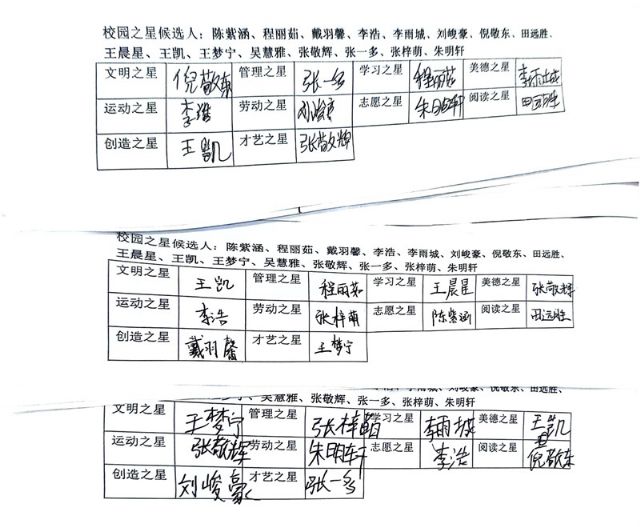 校园之星候选人：陈紫涵、程丽茹、戴羽馨、李浩、李雨城、刘峻豪、倪敬东、田远胜、
王晨星、王凯、王梦宁、吴慧雅、张敬辉、张一多、张梓萌、朱明轩
文明之星 倪敬东 管理之星 张一多 学习之星 程丽茹 美德之星 李雨城
运动之星 李浩 劳动之星 刘峻豪 志愿之星 朱明轩 阅读之星 田远胜
创造之星 王凯 才艺之星 张敬辉
校园之星候选人：陈紫涵、程丽茹、戴羽馨、李浩、李雨城、刘峻豪、倪敬东、田远胜、
王晨星、王凯、王梦宁、吴慧雅、张敬辉、张一多、张梓萌、朱明轩
文明之星 王凯 管理之星 程丽茹 学习之星 王晨星 美德之星 张敬辉
运动之星 李浩 劳动之星 张梓萌 志愿之星 陈紫涵 阅读之星 田远胜
创造之星 戴羽馨 才艺之星 王梦宁
王晨星、王凯、王梦宁、吴慧雅、张敬辉、张一多、张梓萌、朱明轩
文明之星 王梦宁 管理之星 张梓萌 学习之星 李雨城 美德之星 王凯
运动之星 张敬辉 劳动之星 朱明轩 志愿之星 李浩 阅读之星 倪敬东
创造之星 刘峻豪 才艺之星 张一多